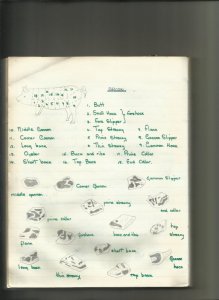 1. Butt
2. Small Hock } Forehock
3. Fore Slipper
4. Top Streaky
5. Prime Streaky
6. Thin Streaky
7. Flank
8. Gammon Slipper
9. Gammon Hock
10. Middle Gammon
11. Corner Gammon
12. Long back
13. Oyster
14. Short back
15. Back and ribs
16. Top Back
17. Prime Collar
18. End Collar.
middle gammon
Corner Gammon
Gammon Slipper
prime streaky
end collar
prime collar
top streaky
flank
forehock
back and ribs
short back
long back
thin streaky
top back
Gammon hock